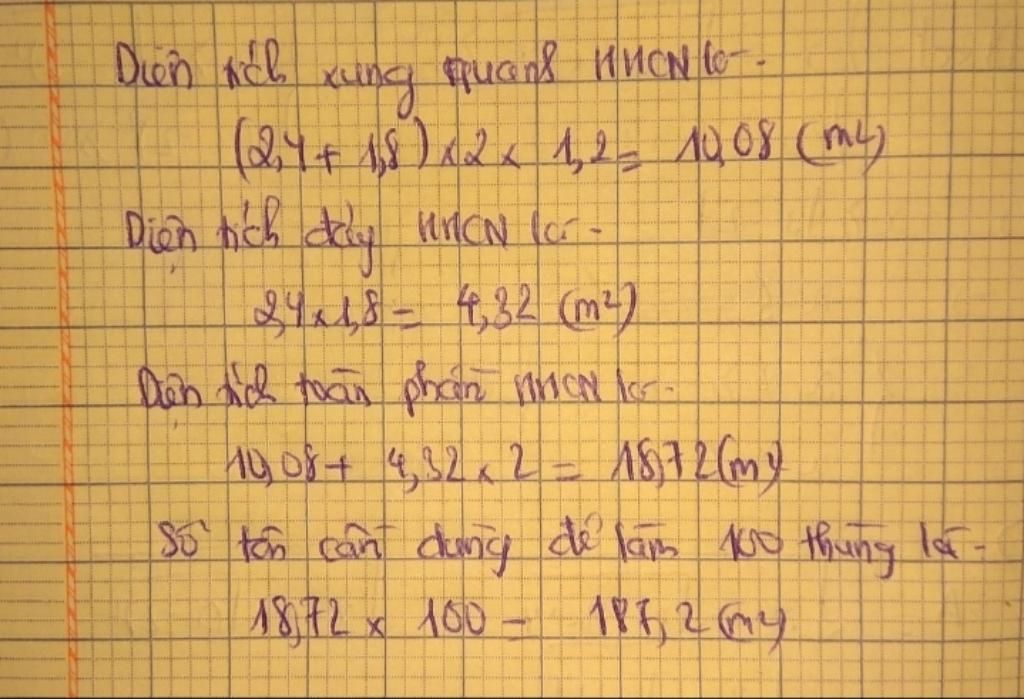 Diện tích xung quanh HHCN là:
(2,4 + 1,8) x 2 x 1,2 = 10,08 (m²)
Diện tích đáy HHCN là:
2,4 x 1,8 = 4,32 (m²)
Diện tích toàn phần HHCN là:
10,08 + 4,32 x 2 = 18,72 (m²)
Số tôn cần dùng để làm 100 thùng là:
18,72 x 100 = 187,2 (m²)